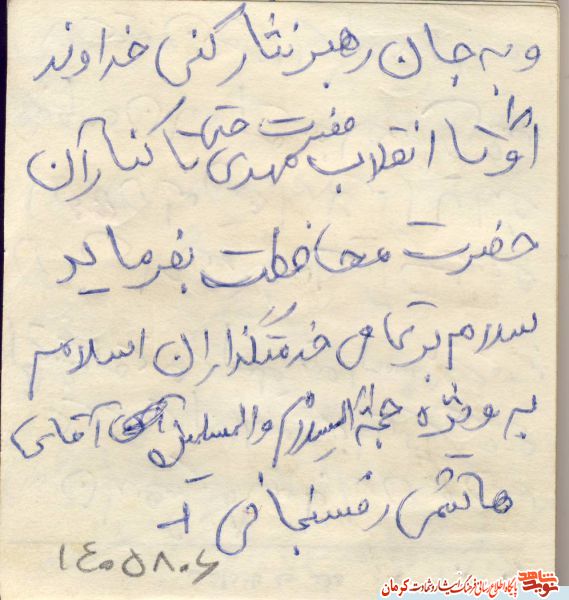 و به جان رهبر نثار کنی خداوند
او را تا انقلاب حضرت مهدی حتی تا کنار آن
حضرت محافظت بفرماید
سلام بر تمامی خدمتگذاران اسلام
به ویژه حجة الاسلام والمسلمین آقای
هاشمی رفسنجانی
۱۴۰۵۸۰۶
نوید شاهد
پایگاه اطلاع رسانی فرهنگ ایثار و شهادت کرمان